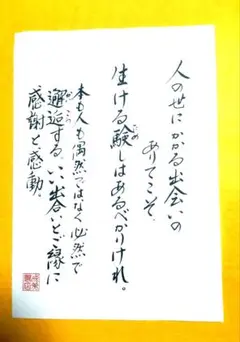 人の世にかかる出会いの
ありてこそ、
生ける験しはあるべかりけれ。
本も人も偶然ではなく必然で
邂逅する。いい出合いとご縁に
感謝と感動。